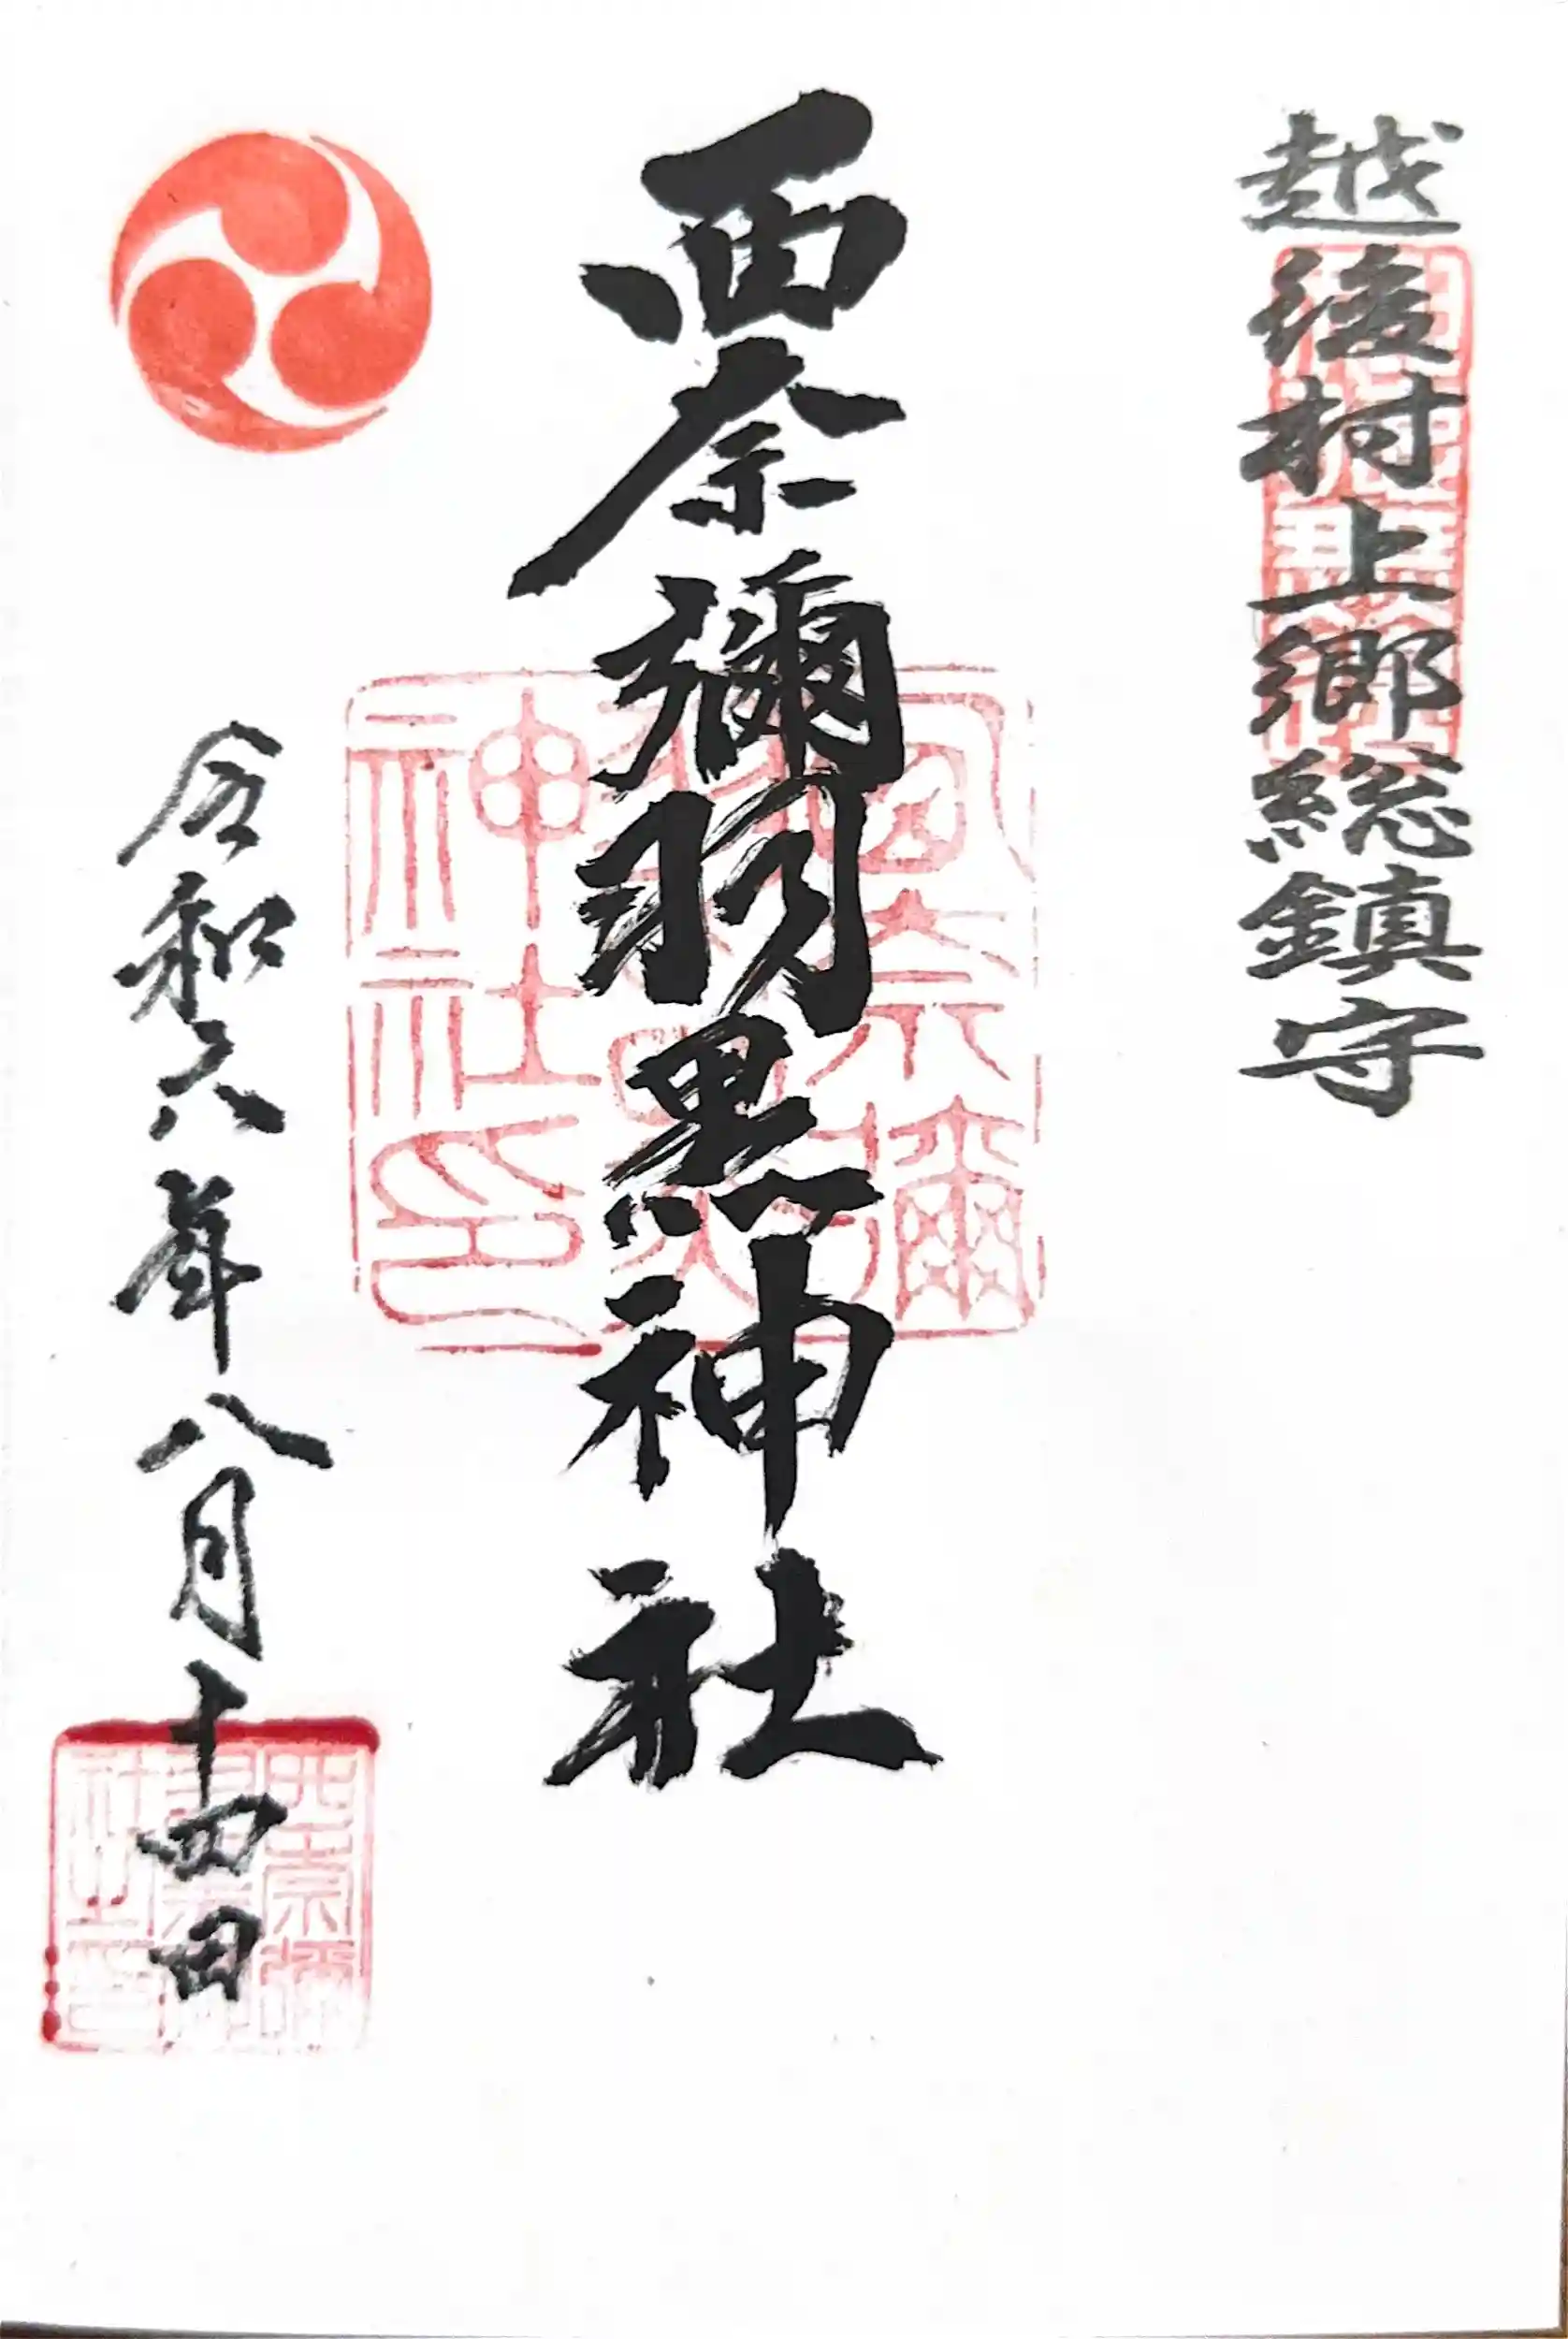 越後村上郷総鎮守
西奈彌羽黒神社
令和六年八月十四日
西奈彌羽黒神社印